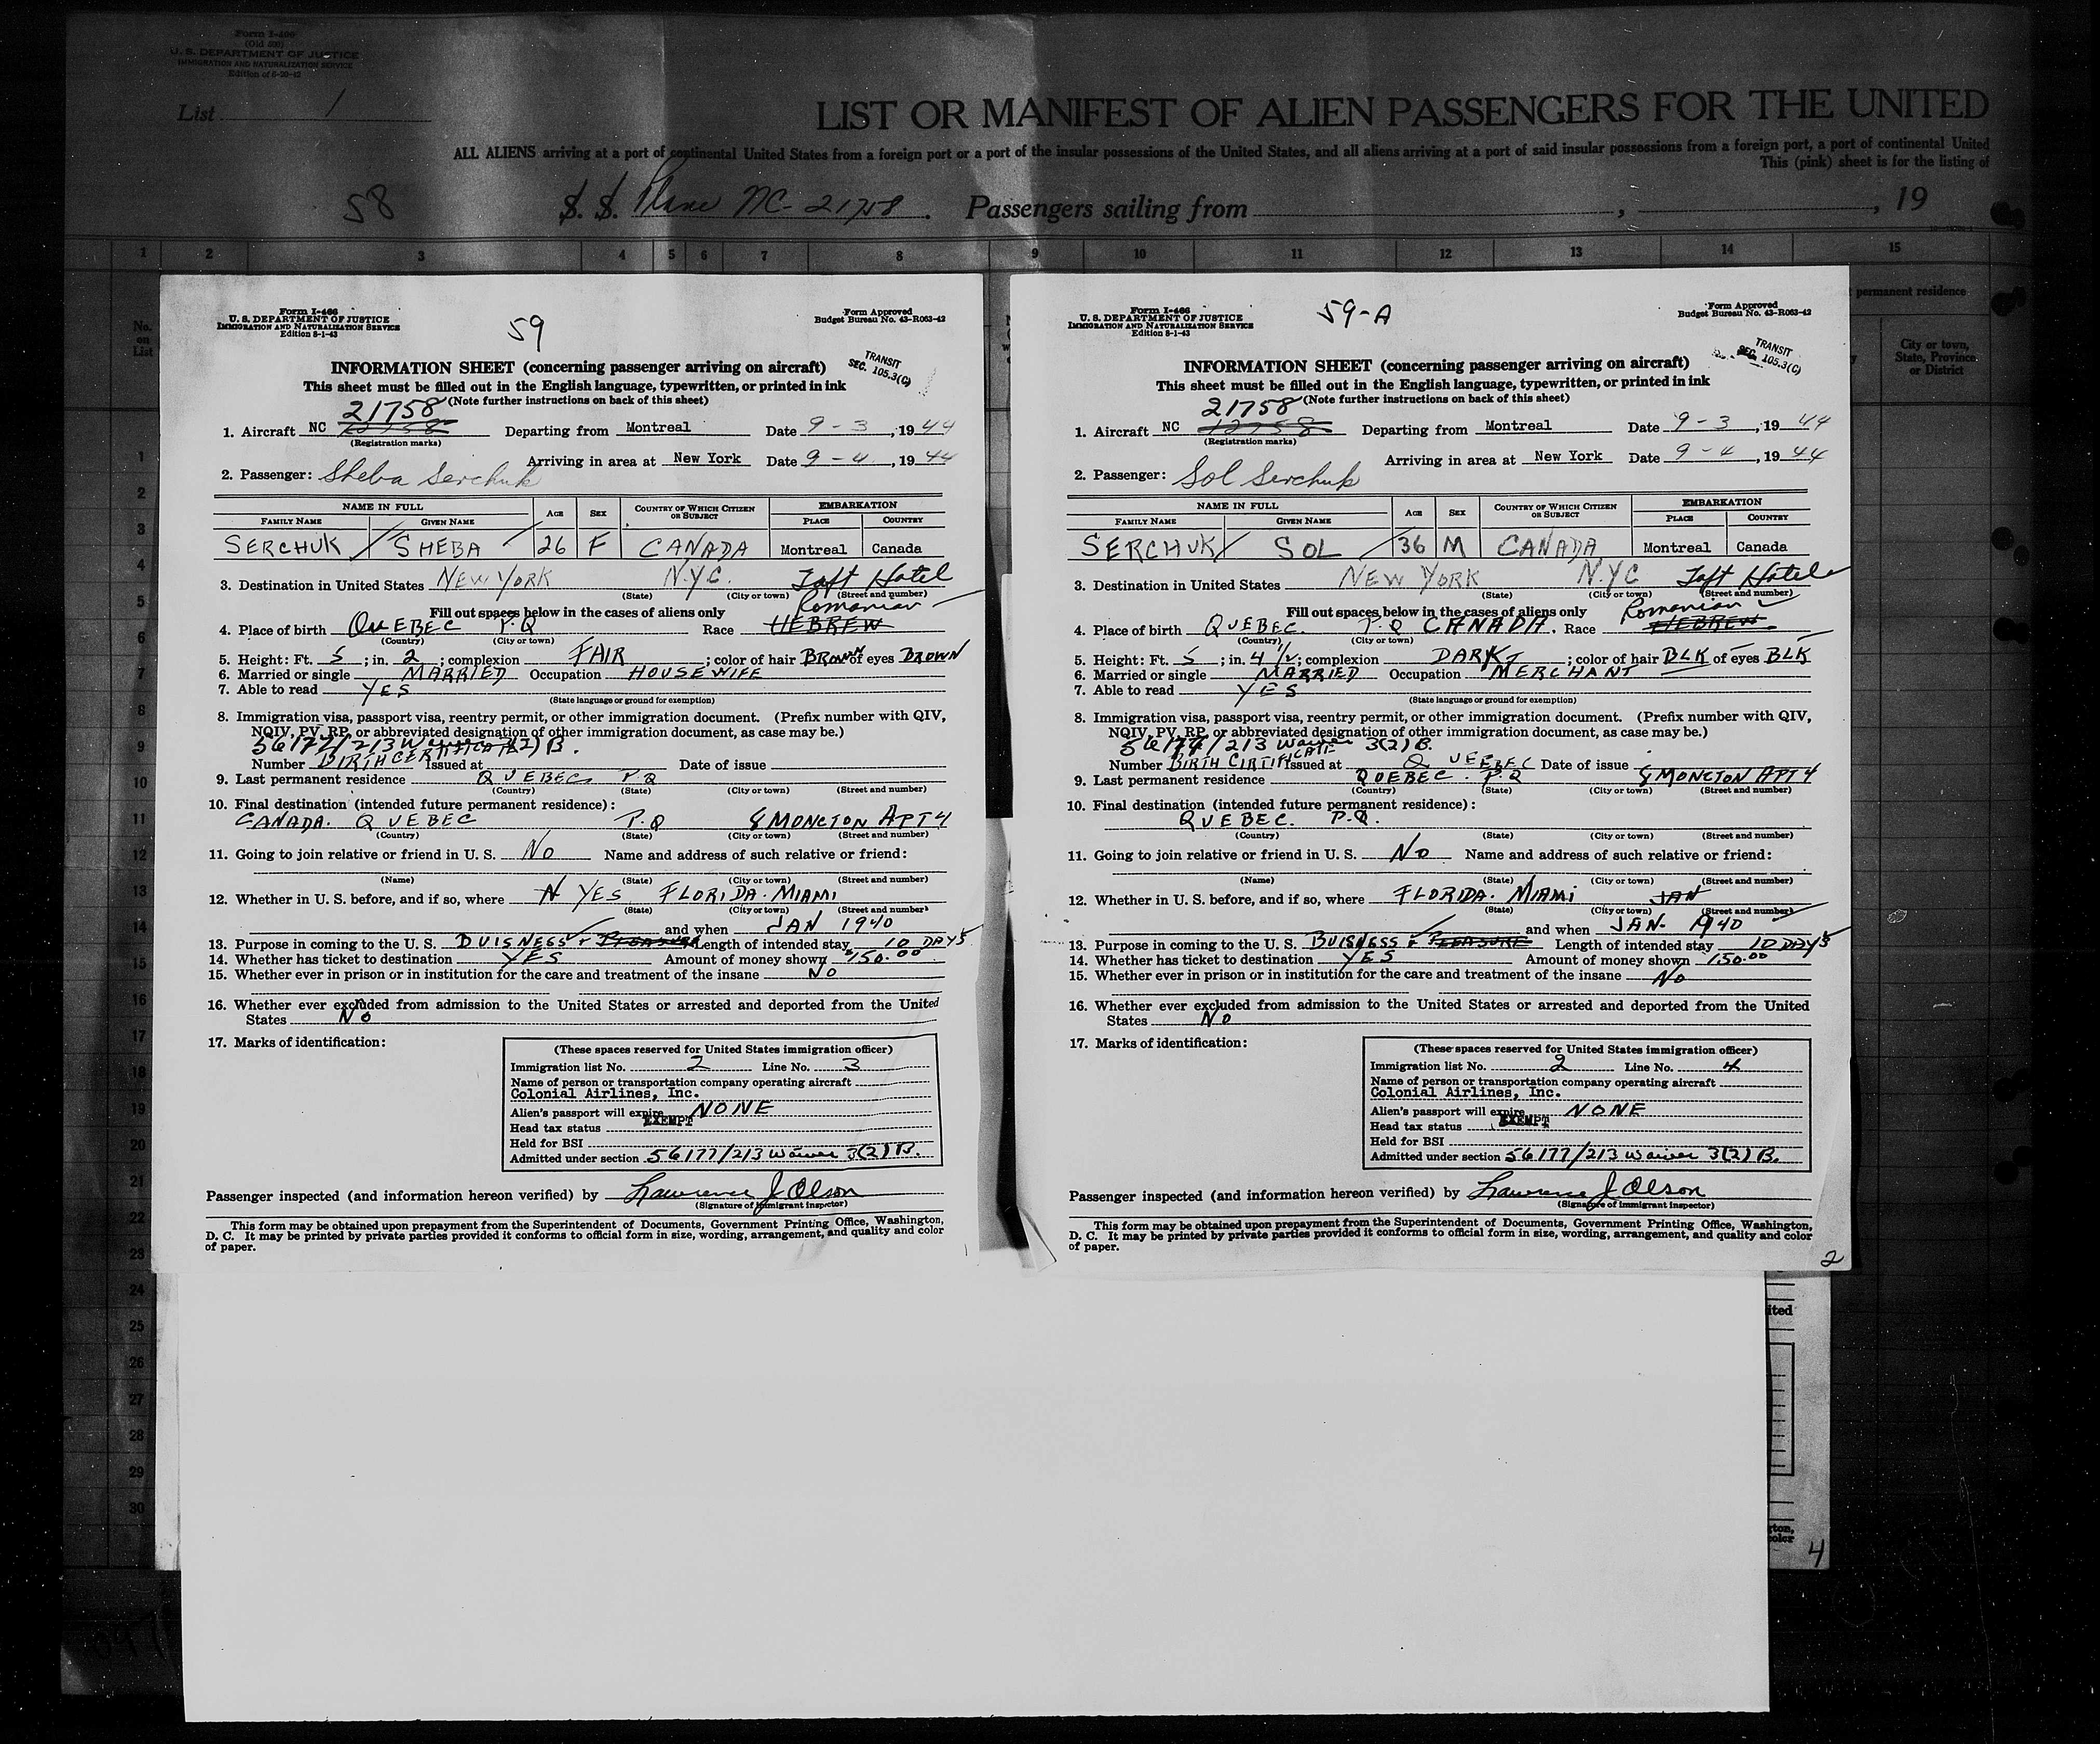 Form I-466
(Old 500)
U. S. DEPARTMENT OF JUSTICE
IMMIGRATION AND NATURALIZATION SERVICE
Edition of 6-20-42
List 1
LIST OR MANIFEST OF ALIEN PASSENGERS FOR THE UNITED
ALL ALIENS arriving at a port of continental United States from a foreign port or a port of the insular possessions of the United States, and all aliens arriving at a port of said insular possessions from a foreign port, a port of continental United
This (pink) sheet is for the listing of
58 S. S. Plane NC-21758. Passengers sailing from , , 19
1 2 3 4 5 6 7 8 9 10 11 12 13 14 15
No. on List
permanent residence
City or town, State, Province or District
Form I-466
U. S. DEPARTMENT OF JUSTICE
IMMIGRATION AND NATURALIZATION SERVICE
Edition 8-1-43
59
Form Approved
Budget Bureau No. 43-R063-42
TRANSIT
SEC. 105.3(C)
INFORMATION SHEET (concerning passenger arriving on aircraft)
This sheet must be filled out in the English language, typewritten, or printed in ink
(Note further instructions on back of this sheet)
21758
1. Aircraft NC 12758 Departing from Montreal Date 9-3, 1944
(Registration marks)
Arriving in area at New York Date 9-4, 1944
2. Passenger: Sheba Serchuk
NAME IN FULL AGE SEX COUNTRY OF WHICH CITIZEN OR SUBJECT EMBARKATION
FAMILY NAME GIVEN NAME PLACE COUNTRY
SERCHUK SHEBA 26 F CANADA Montreal Canada
3. Destination in United States NEW YORK N.Y.C. Taft Hotel
(State) (City or town) (Street and number)
Fill out spaces below in the cases of aliens only
Romanian
4. Place of birth QUEBEC P.Q Race HEBREW
(Country) (City or town)
5. Height: Ft. 5; in. 2; complexion FAIR; color of hair BROWN of eyes BROWN
6. Married or single MARRIED Occupation HOUSEWIFE
7. Able to read YES
(State language or ground for exemption)
8. Immigration visa, passport visa, reentry permit, or other immigration document. (Prefix number with QIV,
NQIV, PV, RP, or abbreviated designation of other immigration document, as case may be.)
56177/213 Waiver 3(2) B.
Number BIRTH CERTIFICATE Issued at Date of issue
9. Last permanent residence QUEBEC P.Q
(Country) (State) (City or town) (Street and number)
10. Final destination (intended future permanent residence):
CANADA. QUEBEC P.Q 8 MONCTON APT 4
(Country) (State) (City or town) (Street and number)
11. Going to join relative or friend in U. S. NO Name and address of such relative or friend:
(Name) (State) (City or town) (Street and number)
12. Whether in U. S. before, and if so, where N YES FLORIDA. MIAMI
(State) (City or town) (Street and number)
and when JAN 1940
13. Purpose in coming to the U. S. BUISNESS & PLEASURE Length of intended stay 10 DAYS
14. Whether has ticket to destination YES Amount of money shown $150.00
15. Whether ever in prison or in institution for the care and treatment of the insane NO
16. Whether ever excluded from admission to the United States or arrested and deported from the United
States NO
17. Marks of identification:
(These spaces reserved for United States immigration officer)
Immigration list No. 2 Line No. 3
Name of person or transportation company operating aircraft
Colonial Airlines, Inc.
Alien's passport will expire NONE
Head tax status EXEMPT
Held for BSI
Admitted under section 56177/213 Waiver 3(2) B.
Passenger inspected (and information hereon verified) by Lawrence J Olson
(Signature of immigrant inspector)
This form may be obtained upon prepayment from the Superintendent of Documents, Government Printing Office, Washington,
D. C. It may be printed by private parties provided it conforms to official form in size, wording, arrangement, and quality and color
of paper.
Form I-466
U. S. DEPARTMENT OF JUSTICE
IMMIGRATION AND NATURALIZATION SERVICE
Edition 8-1-43
59-A
Form Approved
Budget Bureau No. 43-R063-42
TRANSIT
SEC. 105.3(C)
INFORMATION SHEET (concerning passenger arriving on aircraft)
This sheet must be filled out in the English language, typewritten, or printed in ink
(Note further instructions on back of this sheet)
21758
1. Aircraft NC 12758 Departing from Montreal Date 9-3, 1944
(Registration marks)
Arriving in area at New York Date 9-4, 1944
2. Passenger: Sol Serchuk
NAME IN FULL AGE SEX COUNTRY OF WHICH CITIZEN OR SUBJECT EMBARKATION
FAMILY NAME GIVEN NAME PLACE COUNTRY
SERCHUK SOL 36 M CANADA Montreal Canada
3. Destination in United States NEW YORK N.Y.C Taft Hotel
(State) (City or town) (Street and number)
Fill out spaces below in the cases of aliens only
Romanian
4. Place of birth QUEBEC. P.Q CANADA. Race HEBREW
(Country) (City or town)
5. Height: Ft. 5; in. 4 1/2; complexion DARK; color of hair BLK of eyes BLK
6. Married or single MARRIED Occupation MERCHANT
7. Able to read YES
(State language or ground for exemption)
8. Immigration visa, passport visa, reentry permit, or other immigration document. (Prefix number with QIV,
NQIV, PV, RP, or abbreviated designation of other immigration document, as case may be.)
56177/213 Waiver 3(2) B.
Number BIRTH CIRTIFICATE Issued at QUEBEC Date of issue
9. Last permanent residence QUEBEC. P.Q 8 MONCTON APT 4
(Country) (State) (City or town) (Street and number)
10. Final destination (intended future permanent residence):
QUEBEC. P.Q.
(Country) (State) (City or town) (Street and number)
11. Going to join relative or friend in U. S. NO Name and address of such relative or friend:
(Name) (State) (City or town) (Street and number)
12. Whether in U. S. before, and if so, where FLORIDA. MIAMI JAN
(State) (City or town) (Street and number)
and when JAN. 1940
13. Purpose in coming to the U. S. BUISNESS & PLEASURE Length of intended stay 10 DAYS
14. Whether has ticket to destination YES Amount of money shown 150.00
15. Whether ever in prison or in institution for the care and treatment of the insane NO
16. Whether ever excluded from admission to the United States or arrested and deported from the United
States NO
17. Marks of identification:
(These spaces reserved for United States immigration officer)
Immigration list No. 2 Line No. 4
Name of person or transportation company operating aircraft
Colonial Airlines, Inc.
Alien's passport will expire NONE
Head tax status EXEMPT
Held for BSI
Admitted under section 56177/213 Waiver 3(2) B.
Passenger inspected (and information hereon verified) by Lawrence J Olson
(Signature of immigrant inspector)
This form may be obtained upon prepayment from the Superintendent of Documents, Government Printing Office, Washington,
D. C. It may be printed by private parties provided it conforms to official form in size, wording, arrangement, and quality and color
of paper.
2
1
2
3
4
5
6
7
8
9
10
11
12
13
14
15
16
17
18
19
20
21
22
23
24
25
26
27
28
29
30
ited
ton,
color
4